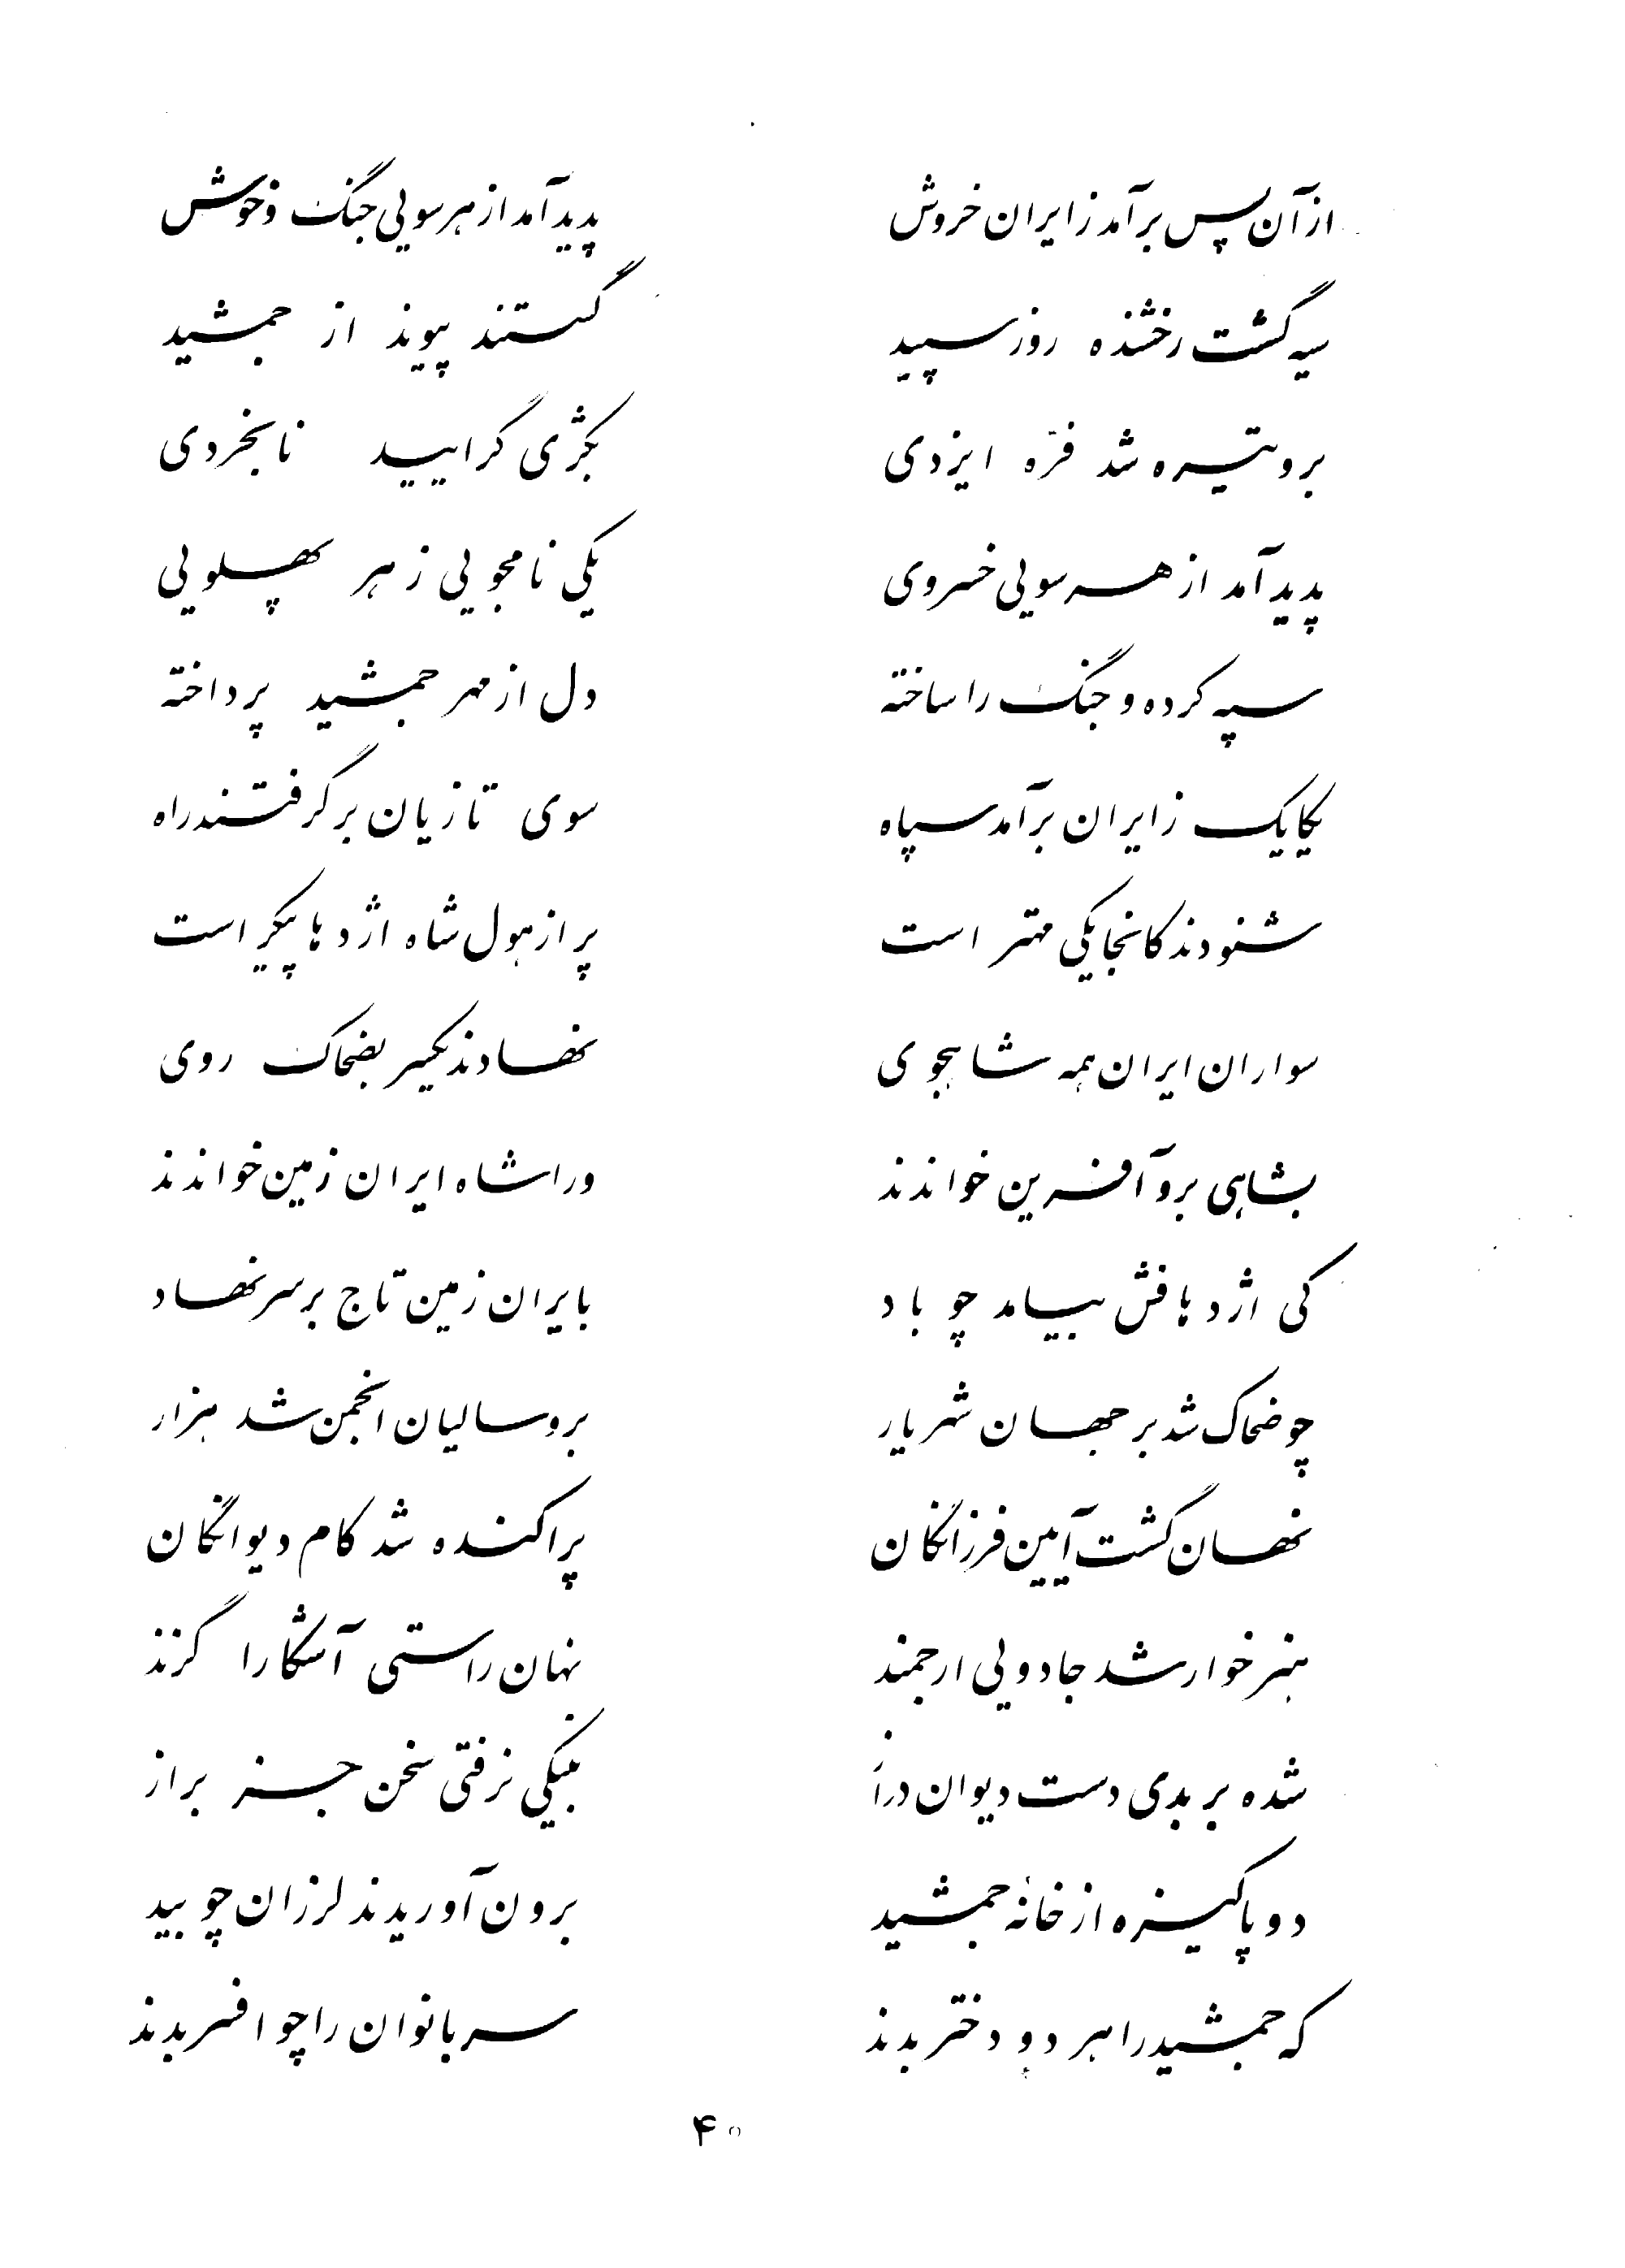 از آن پس برآمد ز ایران خروش پدید آمد از هر سویی جنگ و جوش
سیه گشت رخشنده روز سپید گسستند پیوند از جمشید
برو تیره شد فرّه ایزدی بکژّی گرایید نابخردی
پدید آمد از هر سویی خسروی یکی نامجویی ز هر پهلویی
سپه کرده و جنگ را ساخته دل از مهر جمشید پرداخته
یکایک ز ایران برآمد سپاه سوی تازیان برگرفتند راه
شنودند کانجا یکی مهتر است پر از هول شاه اژدها پیکر است
سواران ایران همه شاهجوی نهادند یکسر بضحاک روی
بشاهی برو آفرین خواندند ورا شاه ایران زمین خواندند
کی اژدهافش بیامد چو باد بایران زمین تاج بر سر نهاد
چو ضحاک شد بر جهان شهریار برو سالیان انجمن شد هزار
نهان گشت آیین فرزانگان پراکنده شد کام دیوانگان
هنر خوار شد جادویی ارجمند نهان راستی آشکارا گزند
شده بر بدی دست دیوان دراز بنیکی نرفتی سخن جز براز
دو پاکیزه از خانهٔ جمشید برون آوریدند لرزان چو بید
که جمشید را هر دو دختر بدند سر بانوان را چو افسر بدند
۴۰